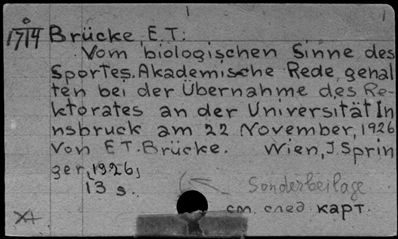 1714 Brücke, E.T:
Vom biologischen Sinne des
Sportes. Akademische Rede, gehal
ten bei der Übernahme des Re-
ktorates an der Universität In
nsbruck am 22 November, 1926
von E T. Brücke. Wien, J Sprin
ger, 1926,
13 s. Sonderbeilage
см. след карт.